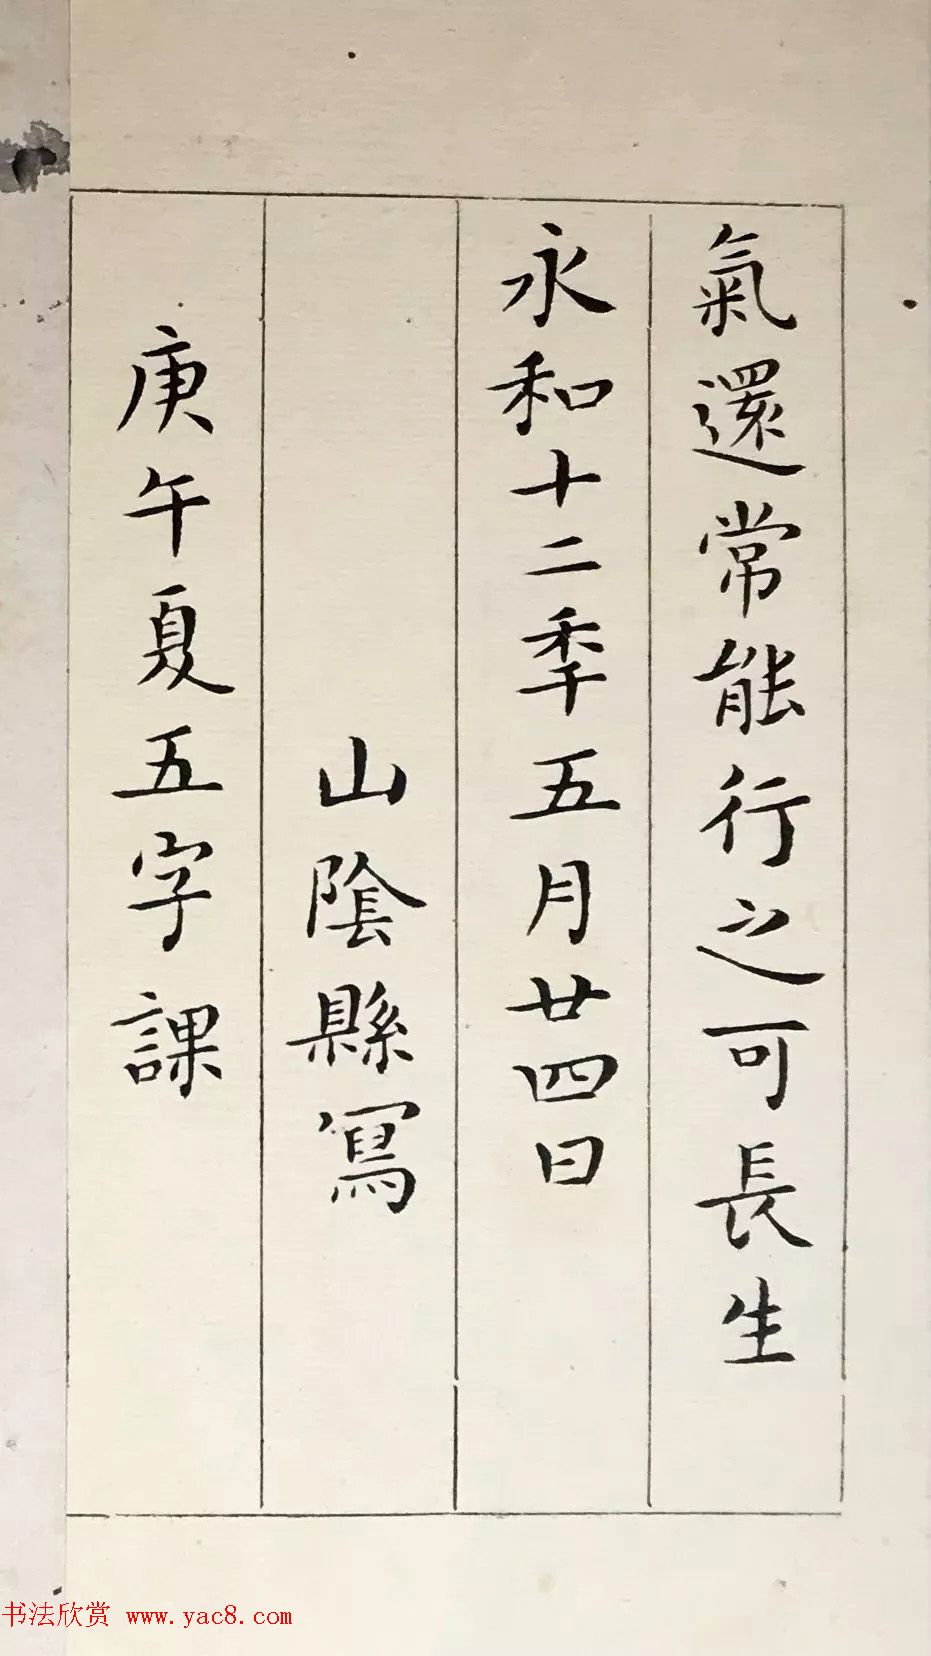 氣還常能行之可長生
永和十二秊五月廿四日
山陰縣寫
庚午夏五字課
书法欣赏 www.yac8.com